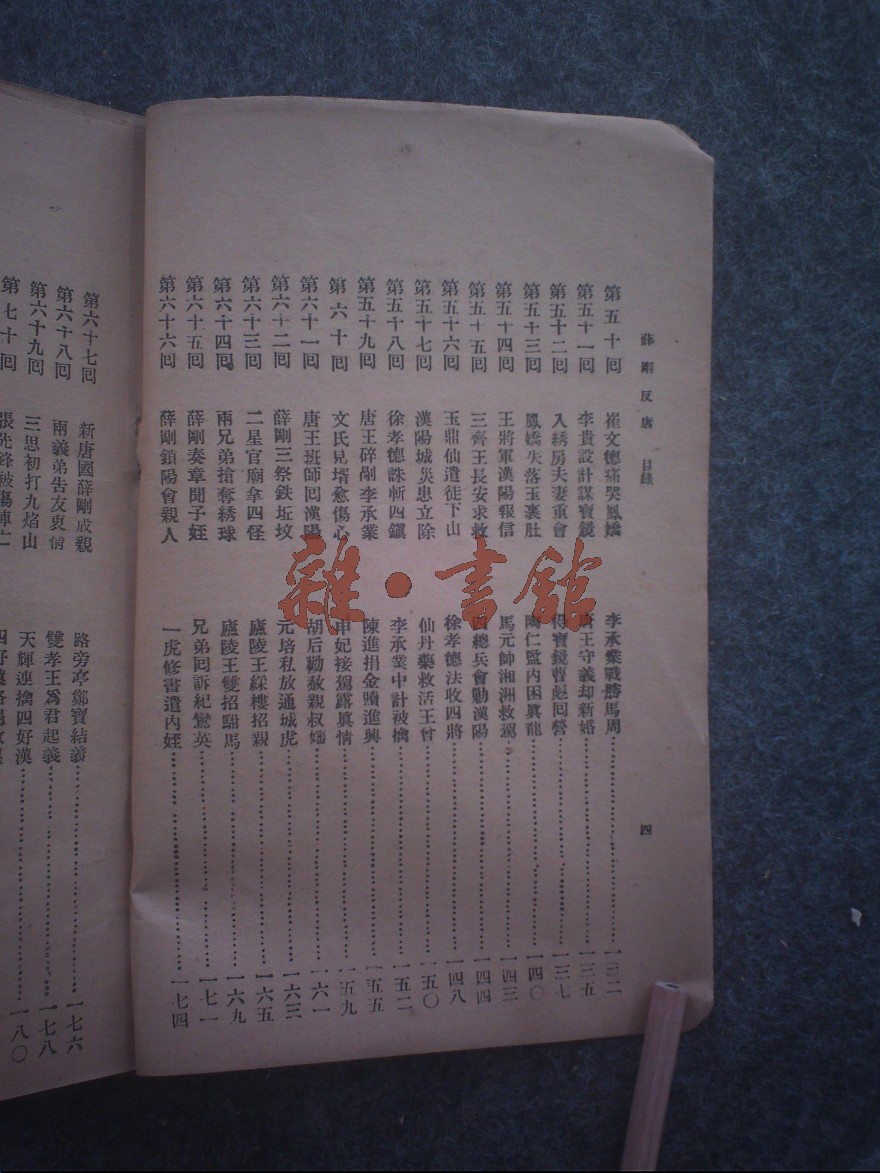 薛剛反唐 目錄 四
第五十回 崔文德痛哭鳳嬌 李承業戰勝馬周 一三二
第五十一回 李貴設計謀寶鏡 唐王守義却新婚 一三五
第五十二回 入綉房夫妻重會 得寶鏡曹彪回營 一三七
第五十三回 鳳嬌失落玉裹肚 陶仁監內困眞龍 一四〇
第五十四回 王將軍漢陽報信 馬元帥湘洲救駕 一四三
第五十五回 三齊王長安求救 四總兵會勦漢陽 一四四
第五十六回 玉鼎仙遣徒下山 徐孝德法收四將 一四八
第五十七回 漢陽城災患立除 仙丹藥救活王曾 一五〇
第五十八回 徐孝德誅斬四鎭 李承業中計被擒 一五二
第五十九回 唐王碎剮李承業 陳進捐金贖進興 一五五
第六十回 文氏見壻愈傷心 申妃接駕露眞情 一五九
第六十一回 唐王班師回漢陽 胡后勸赦親叔嬸 一六一
第六十二回 薛剛三祭鉄坵坟 元培私放通城虎 一六三
第六十三回 二星官廟拿四怪 廬陵王綵樓招親 一六五
第六十四回 兩兄弟搶奪綉球 廬陵王雙招駙馬 一六九
第六十五回 薛剛奏章聞子姪 兄弟回訴紀鸞英 一七一
第六十六回 薛剛鎖陽會親人 一虎修書遣內姪 一七四
第六十七回 新唐國薛剛成親 路旁亭鄭寶結義 一七六
第六十八回 兩義弟告友衷情 雙孝王爲君起義 一七八
第六十九回 三思初打九焰山 天輝連擒四好漢 一八〇
第七十回 張先鋒被傷陣亡
雜·書館